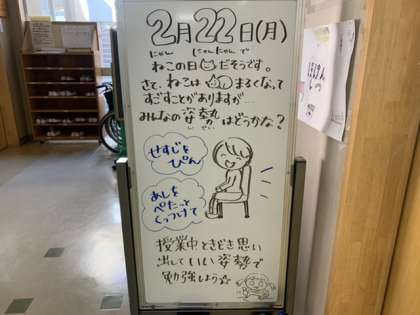 2月22日(月)
にゃん にゃんにゃん で
ねこの日だそうです。
さて、ねこは まるくなって
すごすことがありますが…
みんなの姿勢はどうかな?
しせい
せすじを
ぴん
あしを
ぺたっと
くっつけて
授業中ときどき思い
出していい姿勢で
勉強しよう☆